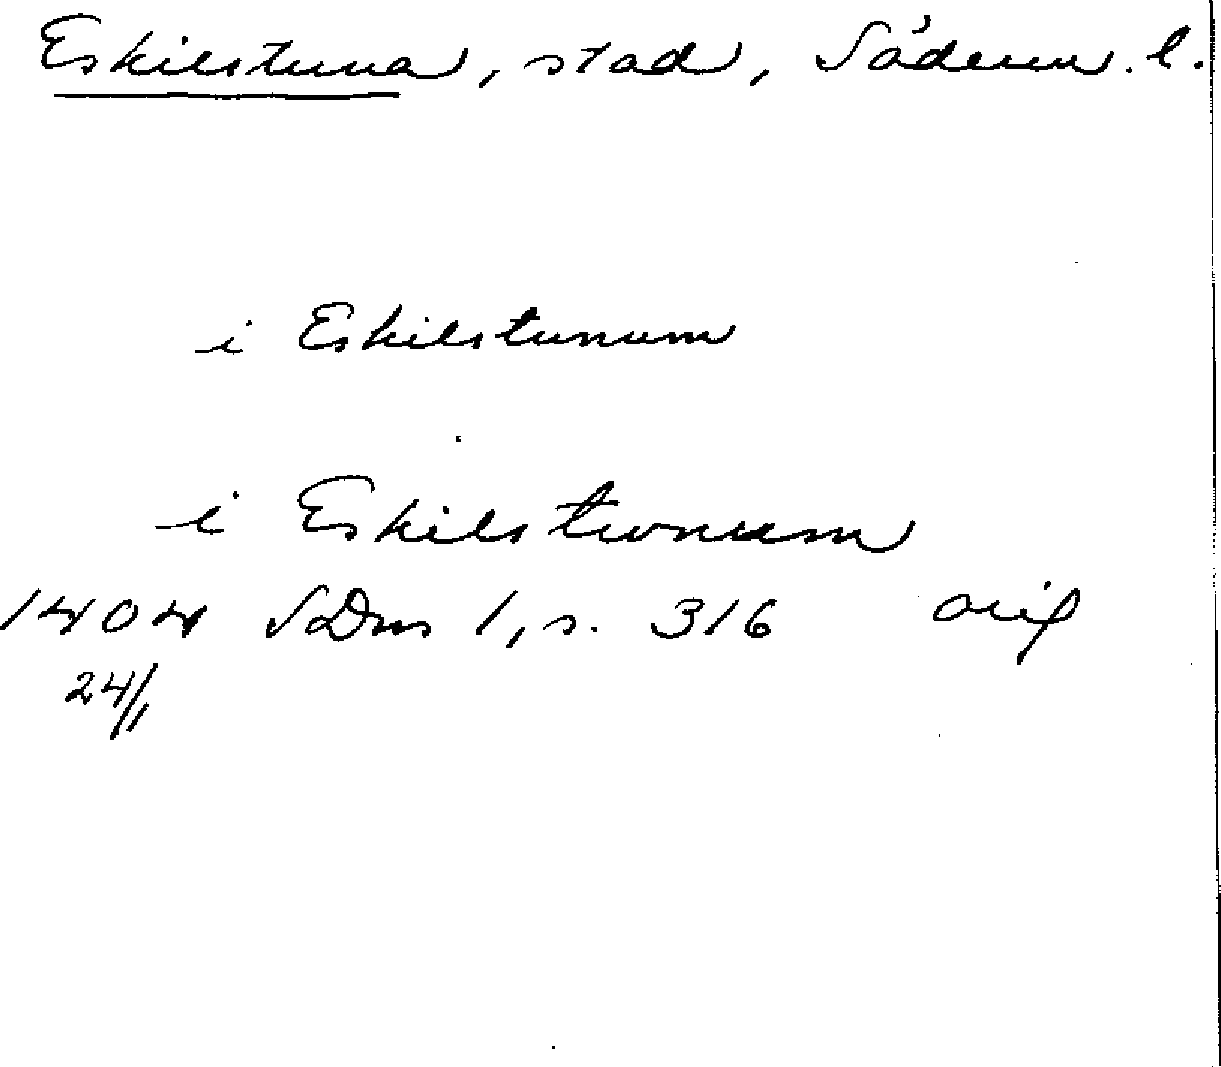 Eskilstuna, stad, Söderm. l.
i Eskilstunum
i Eskilstwnum
1404 SDns 1, s. 316 orig
24/1